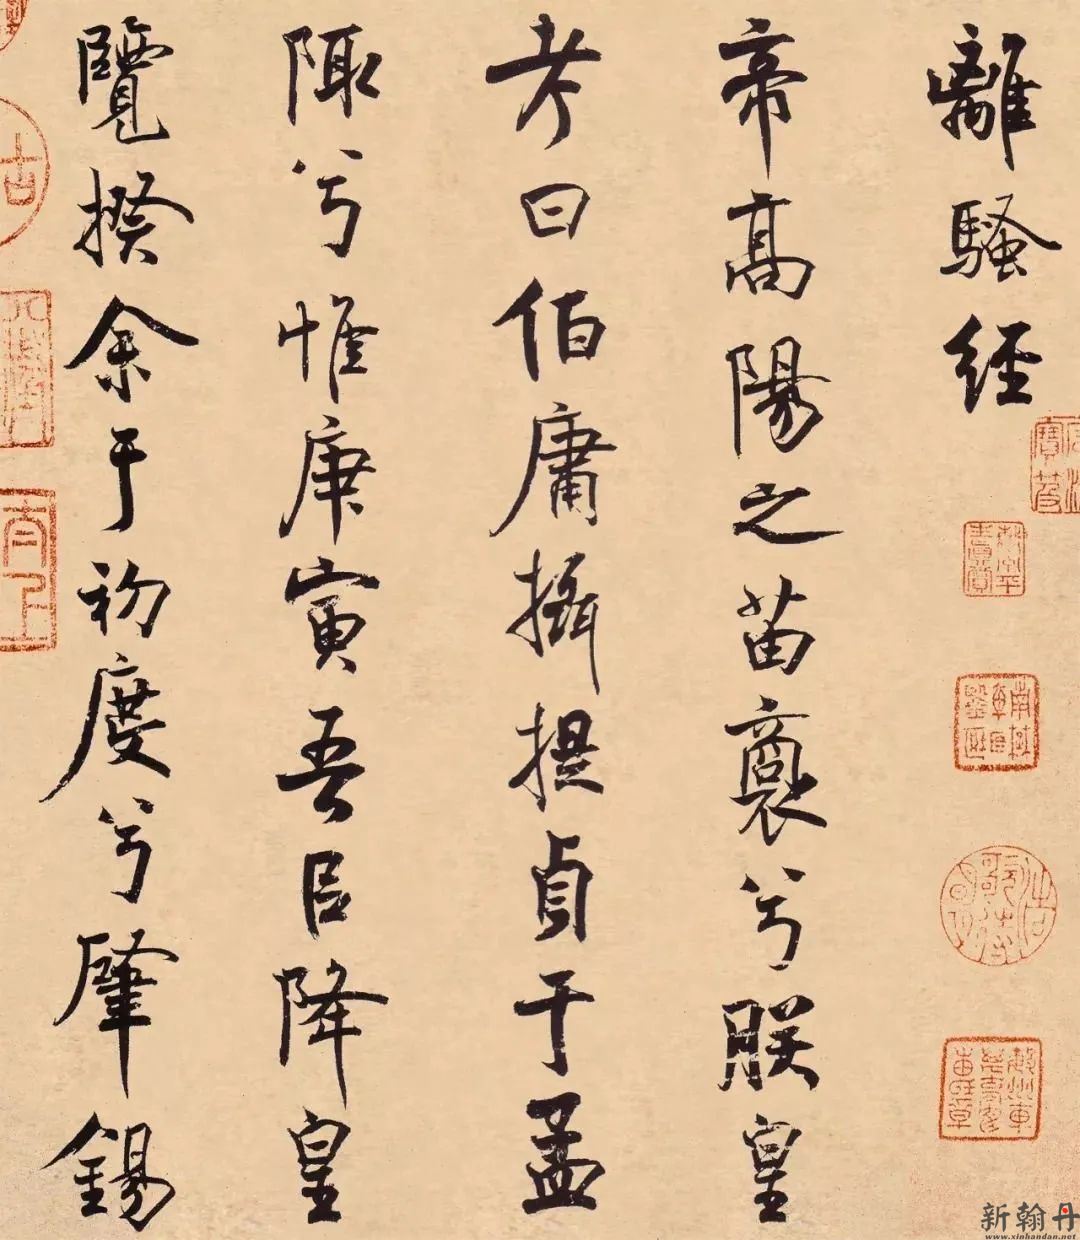 離騷經
帝高陽之苗裔兮朕皇
考曰伯庸攝提貞于孟
陬兮惟庚寅吾㠯降皇
覽揆余于初度兮肇錫
新翰丹
www.xinhandan.net